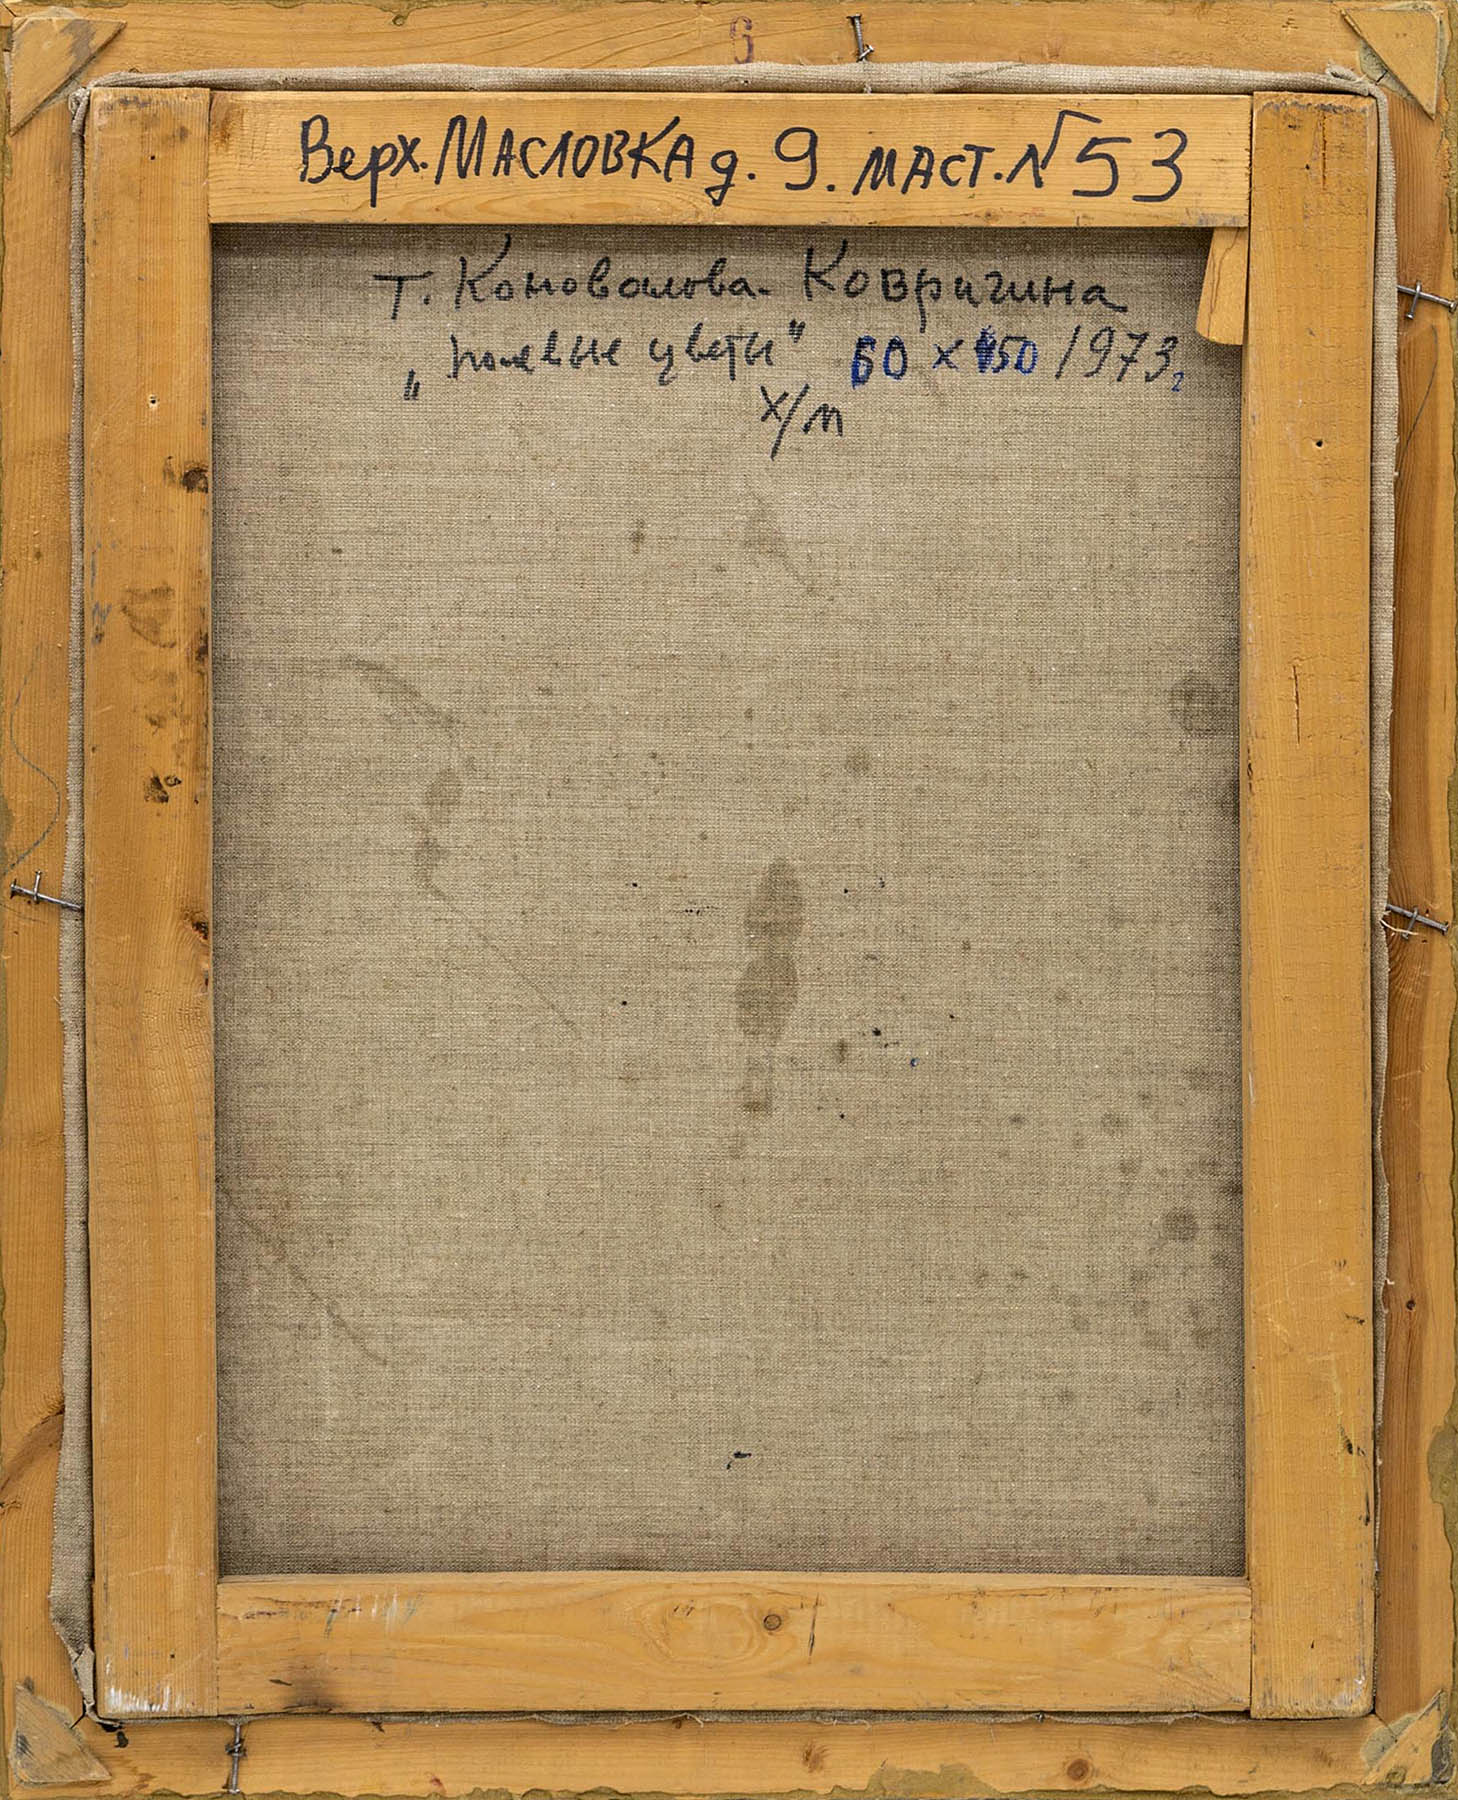 6
Верх. Масловка д. 9. маст. N 53
Т. Коновалова-Ковригина
„полевые цветы" 60 x 50 1973 г
х/м